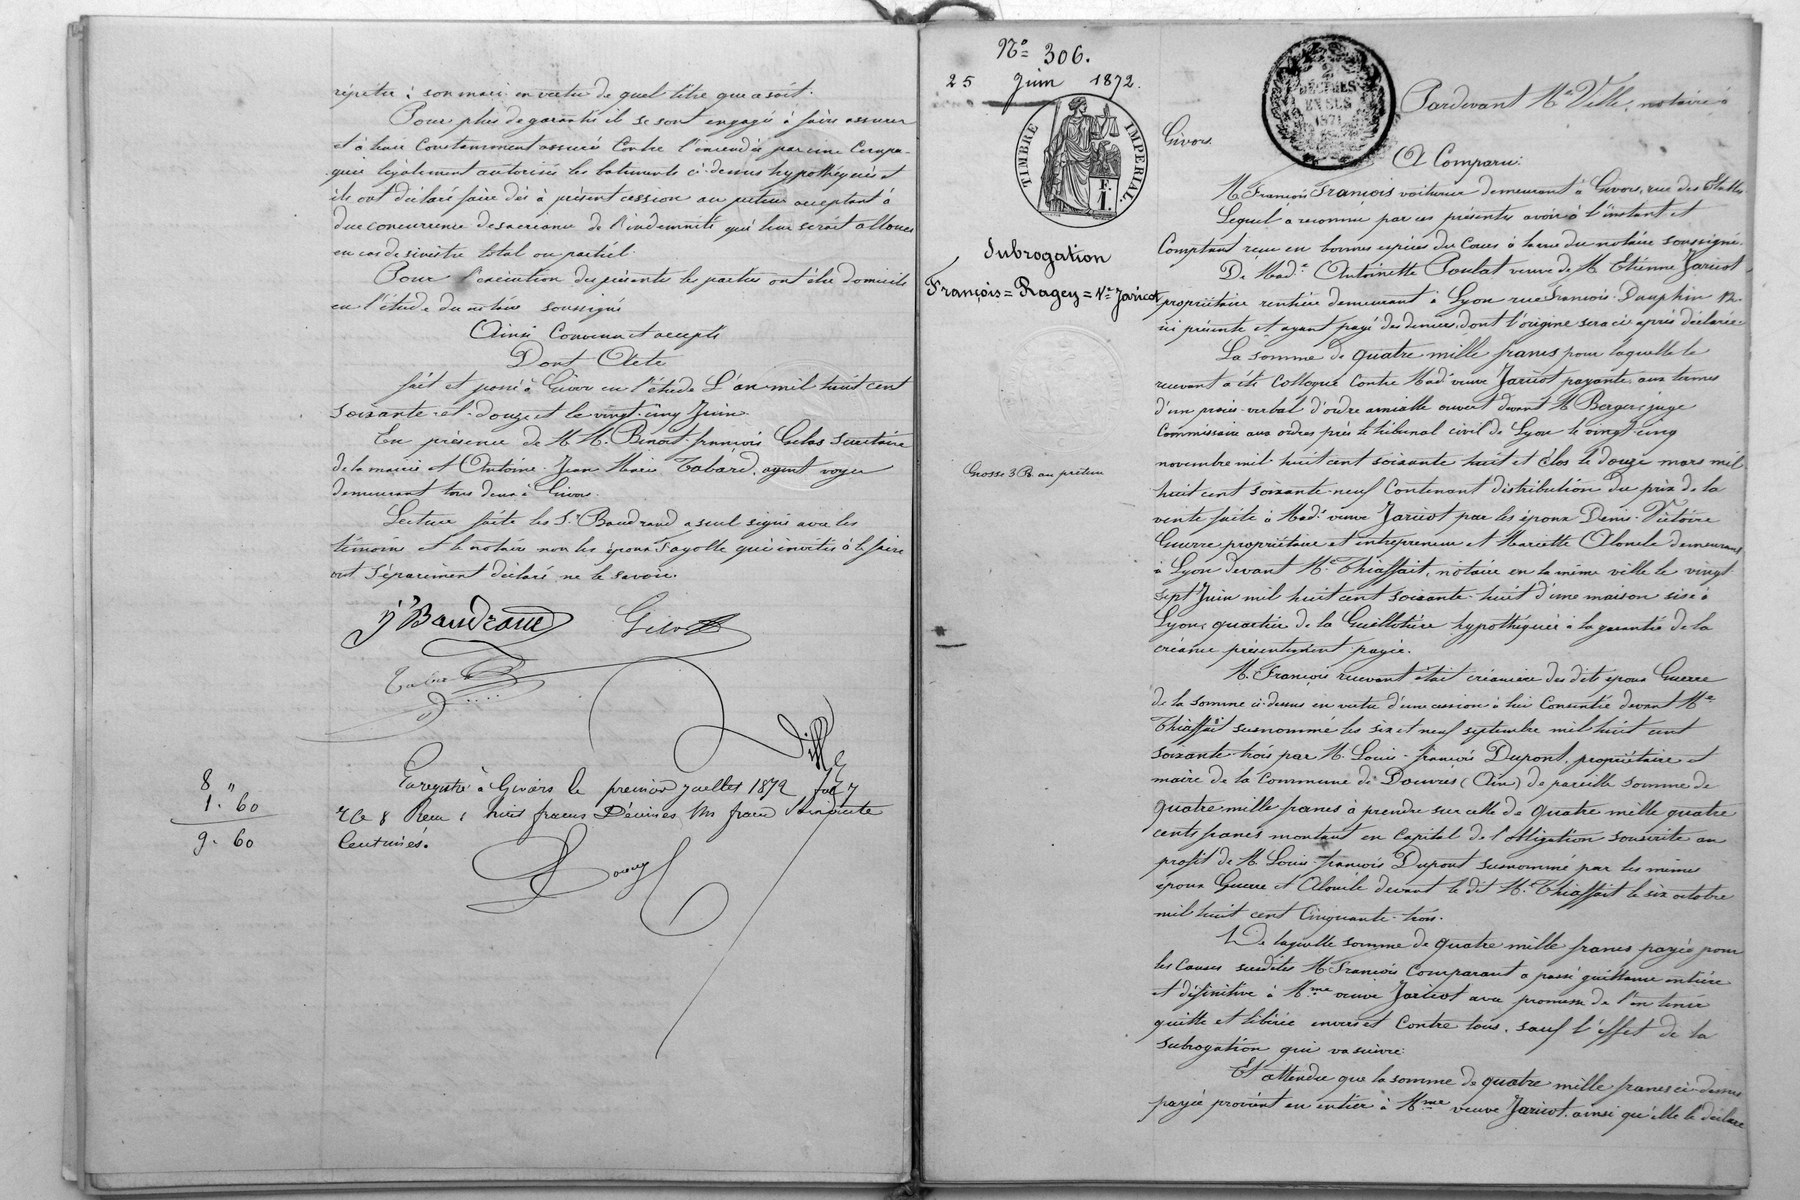 répéter à son mari en vertu de quel titre que ce soit.
Pour plus de garantie ils se sont engagés à faire assurer
et à tenir constamment assurés contre l'incendie par une Compa-
gnie légalement autorisée les batiments ci-dessus hypothéqués et
ils ont déclaré faire dès à présent cession au prêteur acceptant à
due concurrence de sa créance de l'indemnité qui leur serait allouée
en cas de sinistre total ou partiel.
Pour l'exécution des présentes les parties ont élu domicile
en l'étude du notaire soussigné
Ainsi Convenu et accepté
Dont Acte
fait et passé à Givors en l'étude L'an mil huit cent
soixante et douze et le vingt-cinq Juin.
En présence de M.M. Benoit-françois Gelas secrétaire
de la mairie et Antoine Jean Marie Tabard, agent voyer
demeurant tous deux à Givors.
Lecture faite les Sr Baudrand a seul signé avec les
témoins et le notaire non les époux Fayolle qui invités à le faire
ont séparément déclaré ne le savoir.
Baudrand Gelas
Tabard
Ville
8 "
1. 60
9. 60
Enregistré à Givors le premier juillet 1872 fol 7
Reçu : huit francs Décimes un franc soixante
Centimes.
Nº 306.
25 Juin 1872.
TIMBRE IMPERIAL
F. I.
2 DECIMES EN SUS 1871
Subrogation
François = Ragey = Ve Jaricot
Grosse 3 R. au prêteur
Pardevant Me Ville, notaire à
Givors.
A Comparu:
M. François François voiturier demeurant à Givors, rue des
Lequel a reconnu par ces présentes avoir à l'instant et
Comptant reçu en bonnes espèces du Cours à la vue du notaire soussigné.
De Made Antoinette Poulat veuve de M. Etienne Jaricot
propriétaire rentière demeurant à Lyon rue François-Dauphin 12
ici présente et ayant payé des deniers, dont l'origine sera ci après déclarée
La somme de quatre mille francs pour laquelle le
recevant a été Colloqué contre Made veuve Jaricot payante aux termes
d'un procès-verbal d'ordre amiable ouvert devant M. Berger juge
Commissaire aux ordres près le tribunal civil de Lyon le vingt-cinq
novembre mil huit cent soixante huit et clos le douze mars mil
huit cent soixante-neuf contenant distribution du prix de la
vente faite à Made veuve Jaricot par les époux Denis-Victoire
Guerre propriétaire et entrepreneur et Mariette demeurant
à Lyon devant Me Thiaffait, notaire en la même ville le vingt
sept Juin mil huit cent soixante-huit d'une maison sise à
Lyon, quartier de la Guillotière hypothéquée à la garantie de la
créance présentement payée.
M. François recevant était créancier des dits époux Guerre
de la somme ci-dessus en vertu d'une cession à lui Consentie devant Me
Thiaffait susnommé les six et neuf septembre mil huit cent
soixante-trois par M. Louis-françois Dupont, propriétaire et
maire de la Commune de Douvres (Ain) de pareille somme de
quatre mille francs à prendre sur celle de quatre mille quatre
cents francs montant en capital de l'obligation souscrite au
profit de M. Louis-françois Dupont susnommé par les mêmes
époux Guerre et devant le dit Me Thiaffait le six octobre
mil huit cent Cinquante-trois.
De laquelle somme de quatre mille francs payée pour
les Causes susdites M. François comparant a passé quittance entière
et définitive à Mme veuve Jaricot avec promesse de l'en tenir
quitte et libérée envers et contre tous, sauf l'effet de la
subrogation qui va suivre.
Et attendu que la somme de quatre mille francs ci-dessus
payée provient en entier à Mme veuve Jaricot ainsi qu'elle le déclare